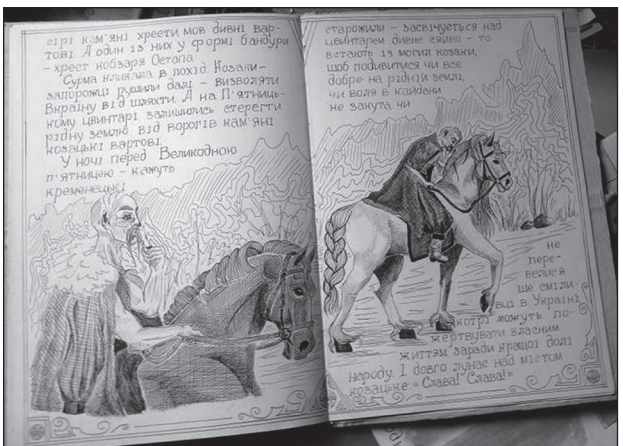 сірі кам'яні хрести, мов дивні вар-
тові. А один із них у формі бандури
- хрест кобзаря Остапа.
Сурма кликала в похід. Козаки-
запорожці рушили далі - визволяти
Вкраїну від шляхти. А на П'ятниць-
кому цвинтарі залишились стерегти
рідну землю від ворогів кам'яні
козацькі вартові.
У ночі перед Великодною
п'ятницею - кажуть
кременецькі
старожили - засвічується над
цвинтарем дивне сяйво - то
встають із могил козаки,
щоб подивитися чи все
добре на рідній землі,
чи воля в кайдани
не закута, чи
не
пере-
велися
ще сміли-
вці в Україні,
котрі можуть по-
жертвувати власним
життям заради кращої долі
народу. І довго лунає над містом
козацьке "Слава!" Слава!"